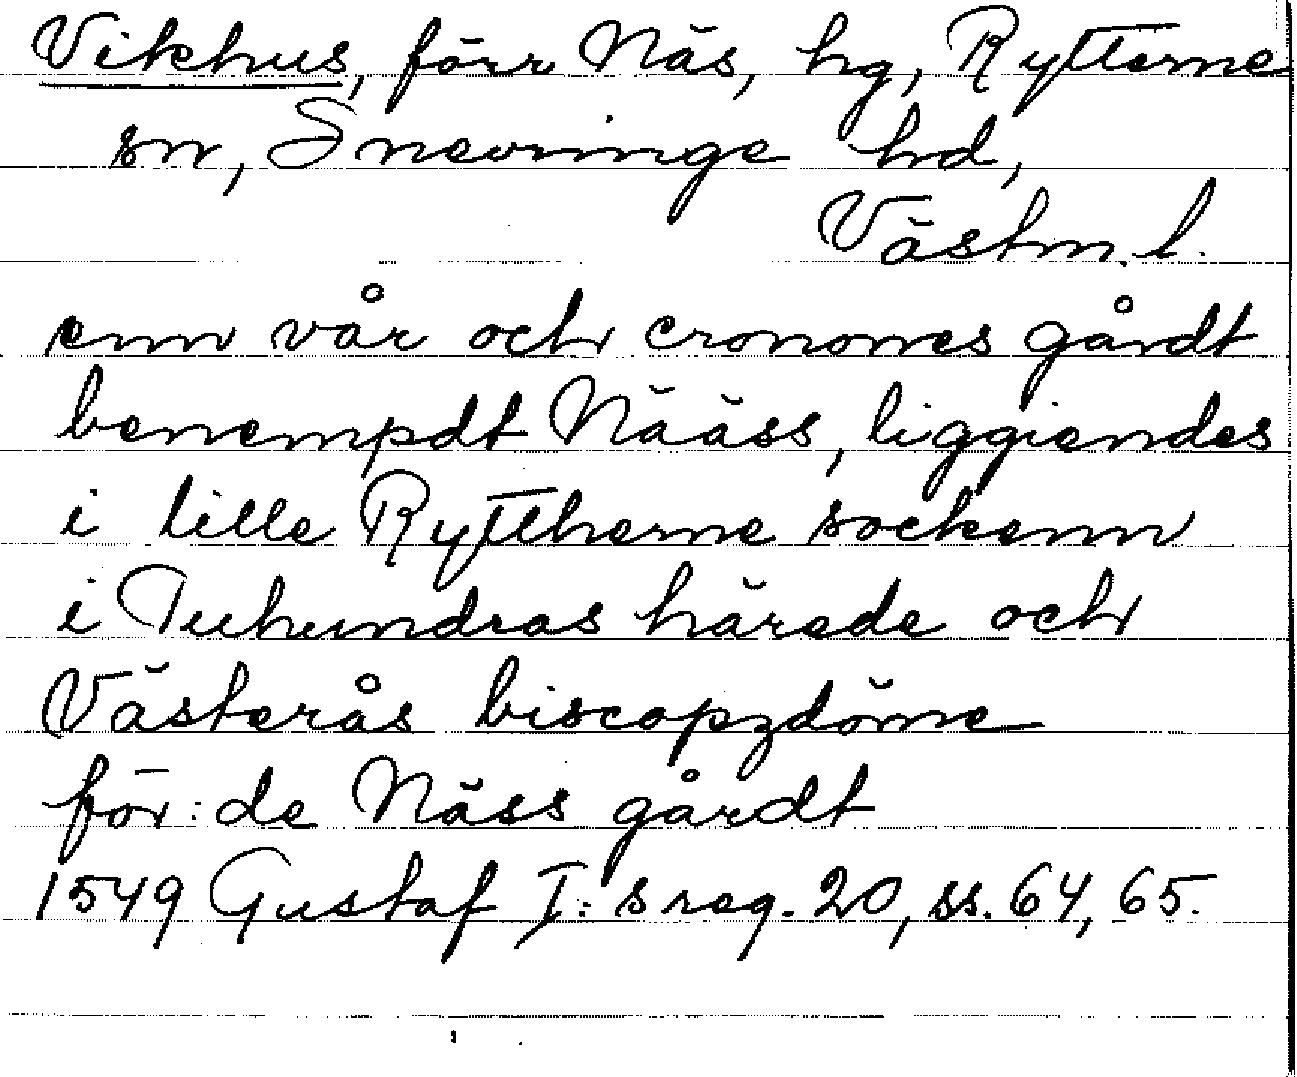 Vikhus, förr Näs, hg, Rytterne
sn, Snevringe hd,
Västm. l.
enn vår och cronones gårdt
benempdt Nääss, liggiendes
i lille Ryttherne sockenn
i Tuhundras härede och
Västerås biscopzdöme
för: de Näss gårdt
1549 Gustaf I:s reg. 20, ss. 64, 65.